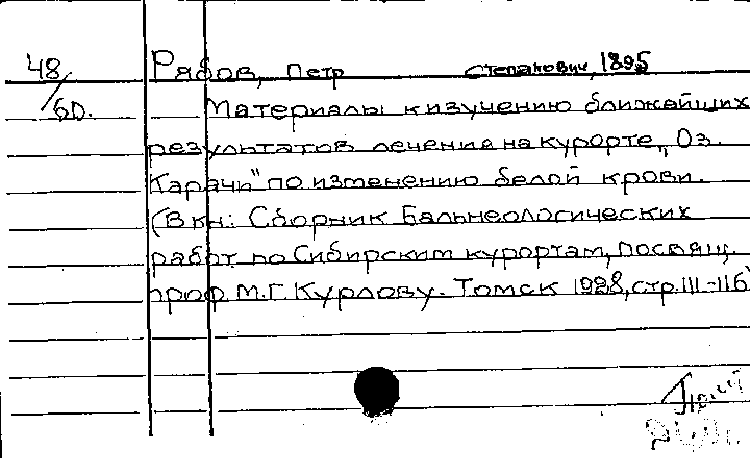 48/60. Рябов, Петр Степанович, 1895
Материалы к изучению ближайших
результатов лечения на курорте „Оз.
Карачи" по изменению белой крови.
(В кн: Сборник Бальнеологических
работ по Сибирским курортам, посвящ.
проф М.Г. Курлову. Томск 1928, стр. 111-116